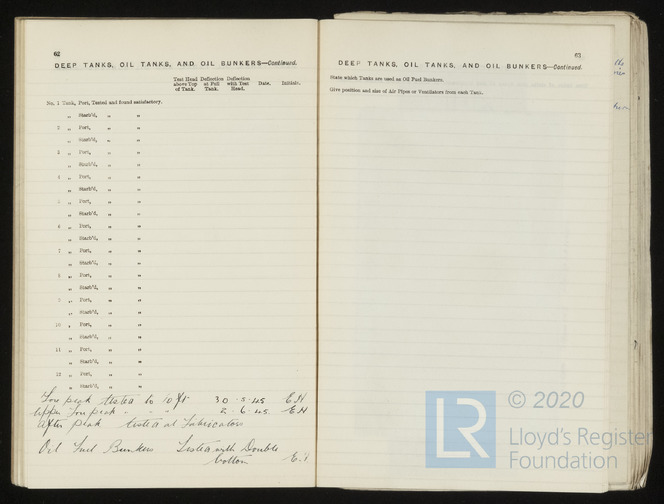 62
DEEP TANKS, OIL TANKS, AND OIL BUNKERS—Continued.
Test Head above Top of Tank. Deflection at Full Tank. Deflection with Test Head. Date. Initials.
No. 1 Tank, Port, Tested and found satisfactory.
„ Starb'd, „ „
2 „ Port, „ „
„ Starb'd, „ „
3 „ Port, „ „
„ Starb'd, „ „
4 „ Port, „ „
„ Starb'd, „ „
5 „ Port, „ „
„ Starb'd, „ „
6 „ Port, „ „
„ Starb'd, „ „
7 „ Port, „ „
„ Starb'd, „ „
8 „ Port, „ „
„ Starb'd, „ „
9 „ Port, „ „
„ Starb'd, „ „
10 „ Port, „ „
„ Starb'd, „ „
11 „ Port, „ „
„ Starb'd, „ „
12 „ Port, „ „
„ Starb'd, „ „
Fore peak tested to 10 ft 30.5.45 E.H
Upper Fore peak - " " 2.6.45. E.H
After peak tested at Fabricators
Oil Fuel Bunkers Tested with Double
bottom E.H
63
DEEP TANKS, OIL TANKS, AND OIL BUNKERS—Continued.
State which Tanks are used as Oil Fuel Bunkers.
Give position and size of Air Pipes or Ventilators from each Tank.
LR
© 2020
Lloyd's Register
Foundation